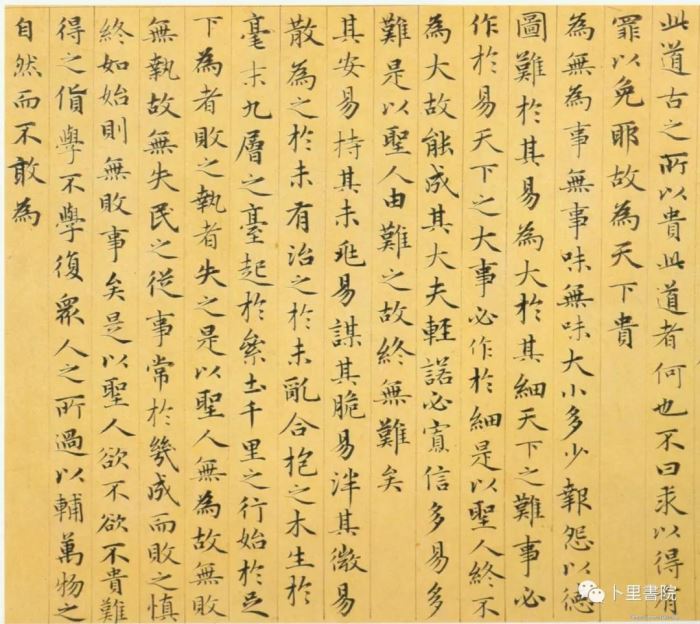 此道古之所以貴此道者何也不曰求以得有
罪以免耶故為天下貴
為無為事無事味無味大小多少報怨以德
圖難於其易為大於其細天下之難事必
作於易天下之大事必作於細是以聖人終不
為大故能成其大夫輕諾必寡信多易多
難是以聖人由難之故終無難矣
其安易持其未兆易謀其脆易泮其微易
散為之於未有治之於未亂合抱之木生於
毫末九層之臺起於絫土千里之行始於足
下為者敗之執者失之是以聖人無為故無敗
無執故無失民之從事常於幾成而敗之慎
終如始則無敗事矣是以聖人欲不欲不貴難
得之貨學不學復眾人之所過以輔萬物之
自然而不敢為
卜里書院